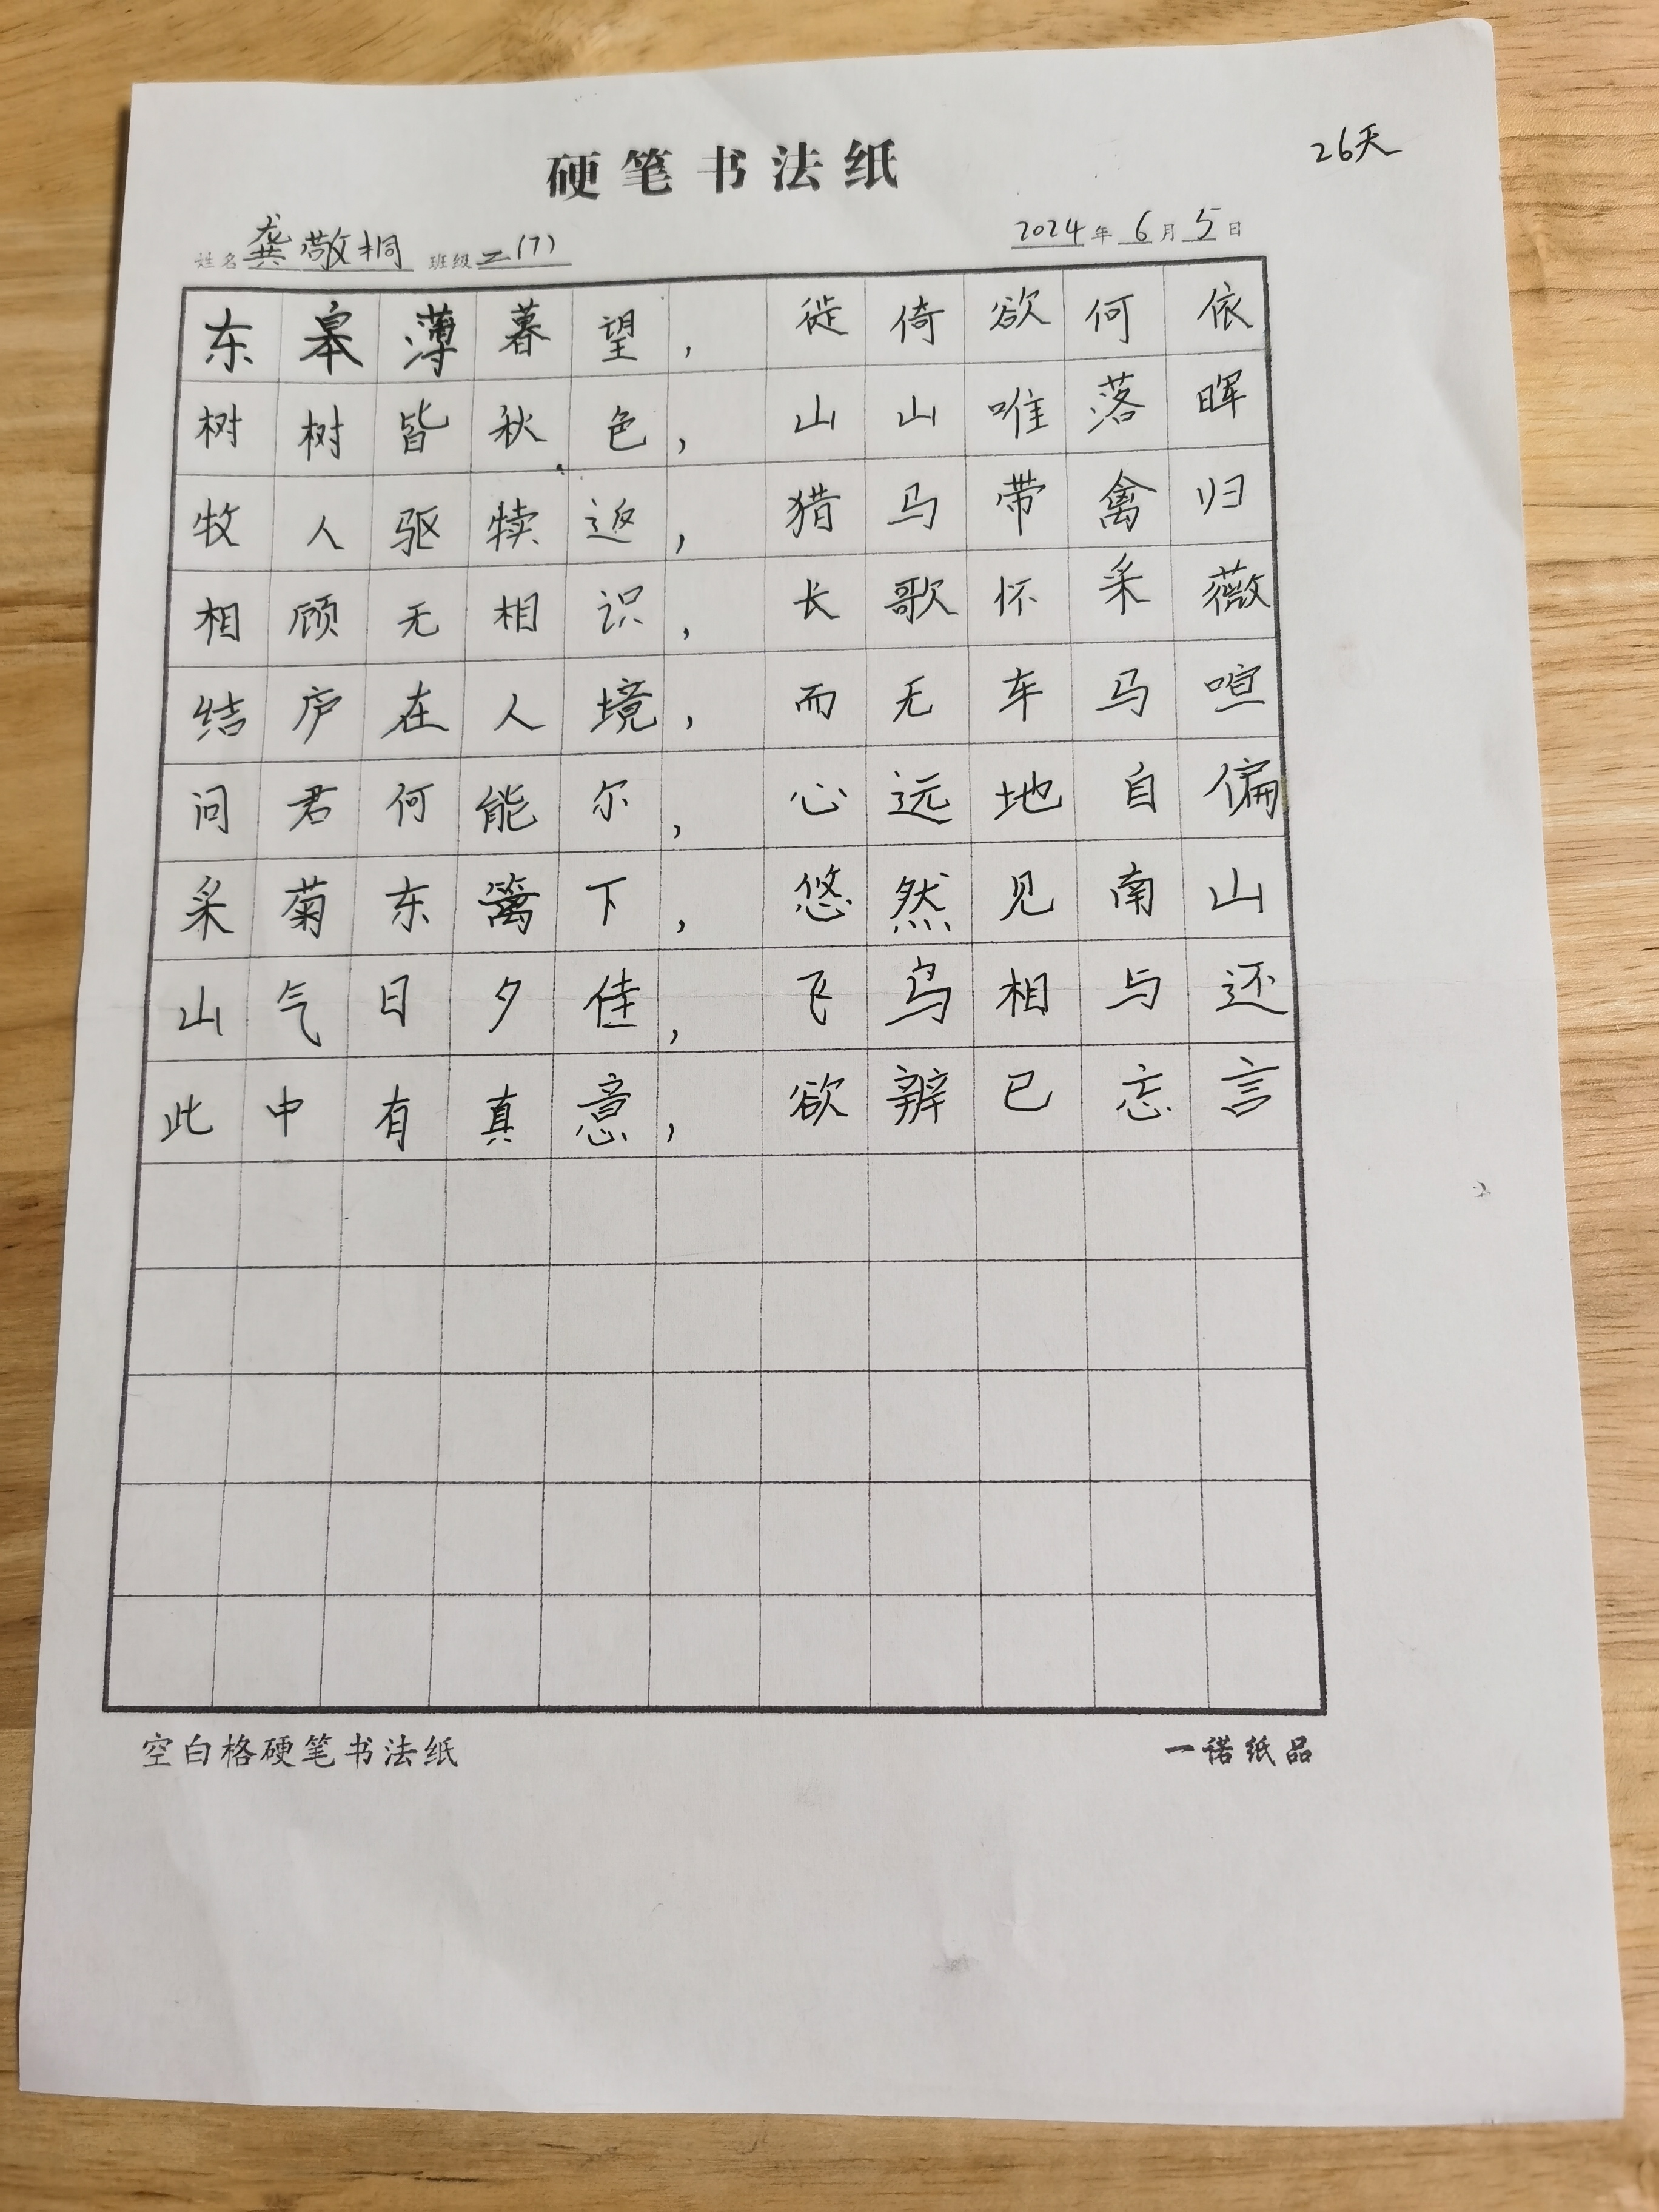 26天
硬笔书法纸
姓名 龚敬桐 班级 二(7) 2024年6月5日
东皋薄暮望，徙倚欲何依
树树皆秋色，山山唯落晖
牧人驱犊返，猎马带禽归
相顾无相识，长歌怀采薇
结庐在人境，而无车马喧
问君何能尔，心远地自偏
采菊东篱下，悠然见南山
山气日夕佳，飞鸟相与还
此中有真意，欲辨已忘言
空白格硬笔书法纸 一诺纸品